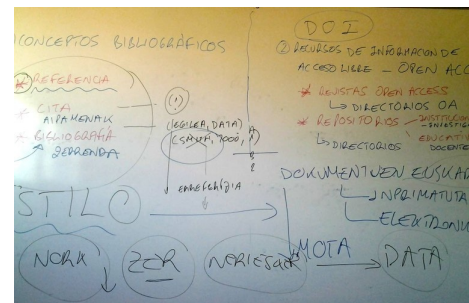 CONCEPTOS BIBLIOGRÁFICOS
* REFERENCIA
* CITA
AIPAMENAK
* BIBLIOGRAFÍA
ZERRENDA
(1)
(EGILEA, DATA)
ERREFERENTZIA
ESTILO
NORK
ZER
DOI
② RECURSOS DE INFORMACION DE
ACCESO LIBRE - OPEN ACC
* REVISTAS OPEN ACCESS
↳ DIRECTORIOS OA
* REPOSITORIOS
↳ DIRECTORIOS
EDUCATIV
DOCENTE
DOKUMENTUEN EUSKAR
INPRIMATUTA
ELEKTRONIK
MOTA
DATA